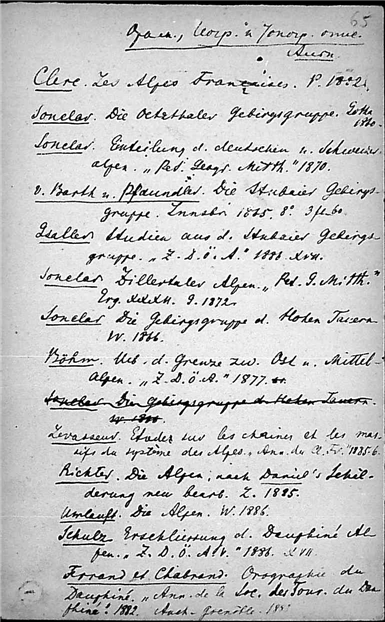 65
Орогр., геогр. и топогр. опис.
Альп.
Clerc. Les Alpes Françaises. P. 1882.
Sonclar. Die Oetzthaler Gebirgsgruppe. Gotha
1860.
Sonclar. Enteilung d. deutschen u. Schweizer
alpen. „Pet. Geogr. Mitth." 1870.
v. Barth u. Pfaundler. Die Stubaier Gebirgs-
gruppe. Innsbr. 1865. 8°.
Gsaller. Studien aus d. Stubaier Gebirgs-
gruppe. „Z. D. Ö. A." 1886. XVII.
Sonclar. Zillertaler Alpen. „Pet. G. Mitth."
Erg. XXXII. G. 1872.
Sonclar. Die Gebirgsgruppe d. Hohen Tauern
W. 1866.
Böhm. Ueb. d. Grenze zw. Ost u. Mittel-
alpen. „Z. D. Ö. A." 1877.
Sonclar. Die Gebirgsgruppe d. Hohen Tauern.
W. 1866
Levasseur. Etudes sur les chaines et les mas-
sifs du système des Alpes. Ann. du C. A. Fr. 1885.6.
Richter. Die Alpen, nach Daniel's Schil-
derung neu bearb. L. 1885.
Umlauft. Die Alpen. W. 1886.
Schulz. Erschlierung d. Dauphiné Al-
pen. „Z. D. Ö. A V." 1886. XVII.
Ferrand et Chabrand. Orographie du
Dauphiné. „Ann. de la Soc. des Tour. du Dau-
phiné". 1882. Auch. Grenoble.